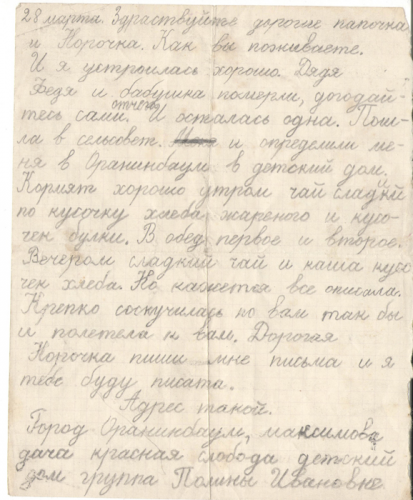 28 марта. Здраствуйте дорогие папочка
и Норочка. Как вы поживаете.
И я устроилась хорошо. Дядя
Федя и бабушка померли, догодай-
тесь сами. отчего И осталась одна. Пош-
ла в сельсовет. и определили ме-
ня в Ораниинбаум в детский дом.
Кормят хорошо утром чай сладкий
по кусочку хлеба жареного и кусо-
чек булки. В обед первое и второе.
Вечером сладкий чай и каша кусо
чек хлеба. Но кажется все описала.
Крепко соскучилась по вам так бы
и полетела к вам. Дорогая
Норочка пиши мне письма и я
тебе буду писата.
Адрес такой.
Город Ораниинбаум, максимова
дача красная слобода детский
дом группа Полины Ивановне